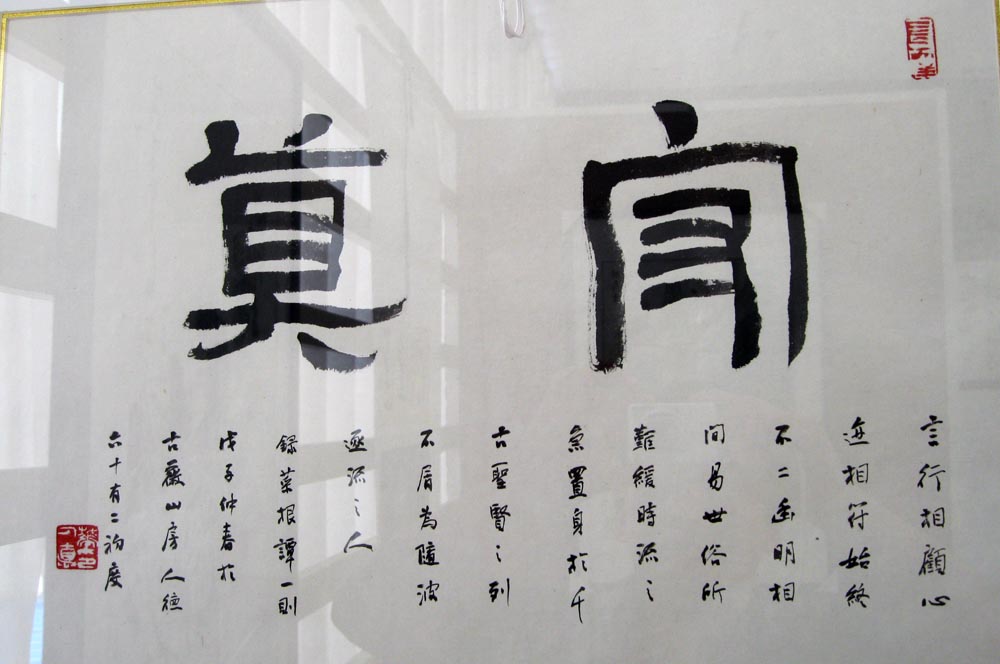 守真
言行相顧心
迹相符始終
不二幽明相
間易世俗所
難緩時流之
急置身於千
古聖賢之列
不屑為隨波
逐流之人
錄菜根譚一則
戊子仲春於
古薇山房人德
六十有二初度